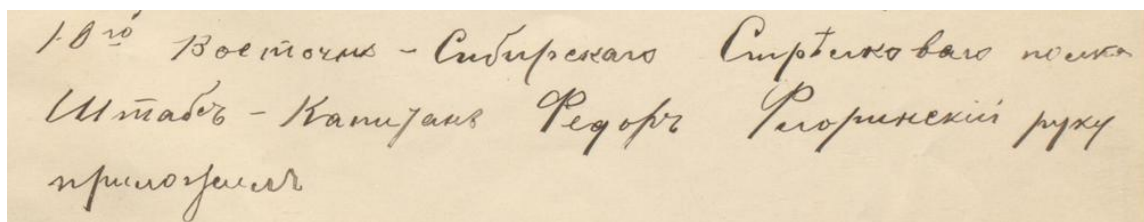 10го Восточно-Сибирскаго Стрѣлковаго полка
Штабсъ-Капитанъ Федоръ Флоринскій руку
приложилъ